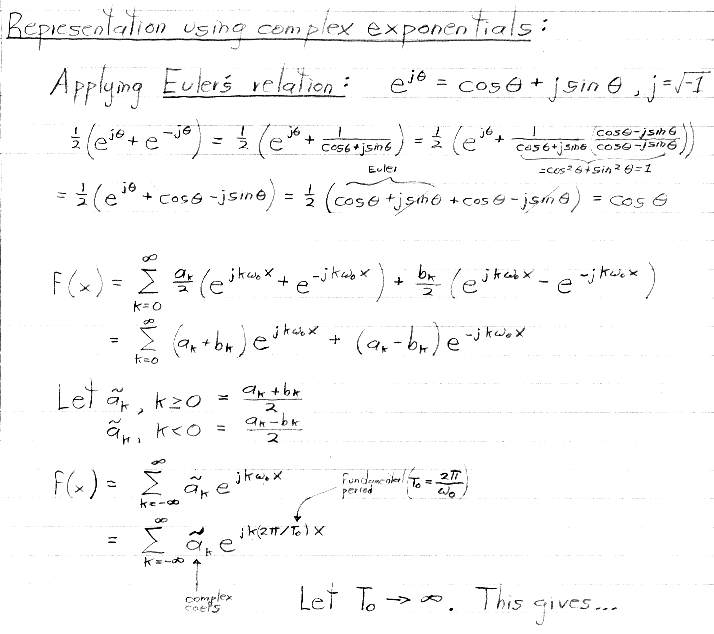 Representation using complex exponentials:
Applying Euler's relation: e^{jθ} = cosθ + j sinθ, j=√-1
½(e^{jθ} + e^{-jθ}) = ½(e^{jθ} + 1/(cosθ+jsinθ)) = ½(e^{jθ} + 1/(cosθ+jsinθ) (cosθ-jsinθ)/(cosθ-jsinθ))
=cos²θ+sin²θ=1
Euler
= ½(e^{jθ} + cosθ - jsinθ) = ½(cosθ + jsinθ + cosθ - jsinθ) = cosθ
F(x) = ∑_{k=0}^{∞} a_k/2 (e^{jkω₀x} + e^{-jkω₀x}) + b_k/2 (e^{jkω₀x} - e^{-jkω₀x})
= ∑_{k=0}^{∞} (a_k+b_k) e^{jkω₀x} + (a_k-b_k) e^{-jkω₀x}
Let ã_k, k≥0 = (a_k+b_k)/2
ã_k, k<0 = (a_k-b_k)/2
F(x) = ∑_{k=-∞}^{∞} ã_k e^{jkω₀x}
Fundamental period (T₀ = 2π/ω₀)
= ∑_{k=-∞}^{∞} ã_k e^{jk(2π/T₀)x}
complex
coefs
Let T₀ → ∞. This gives...